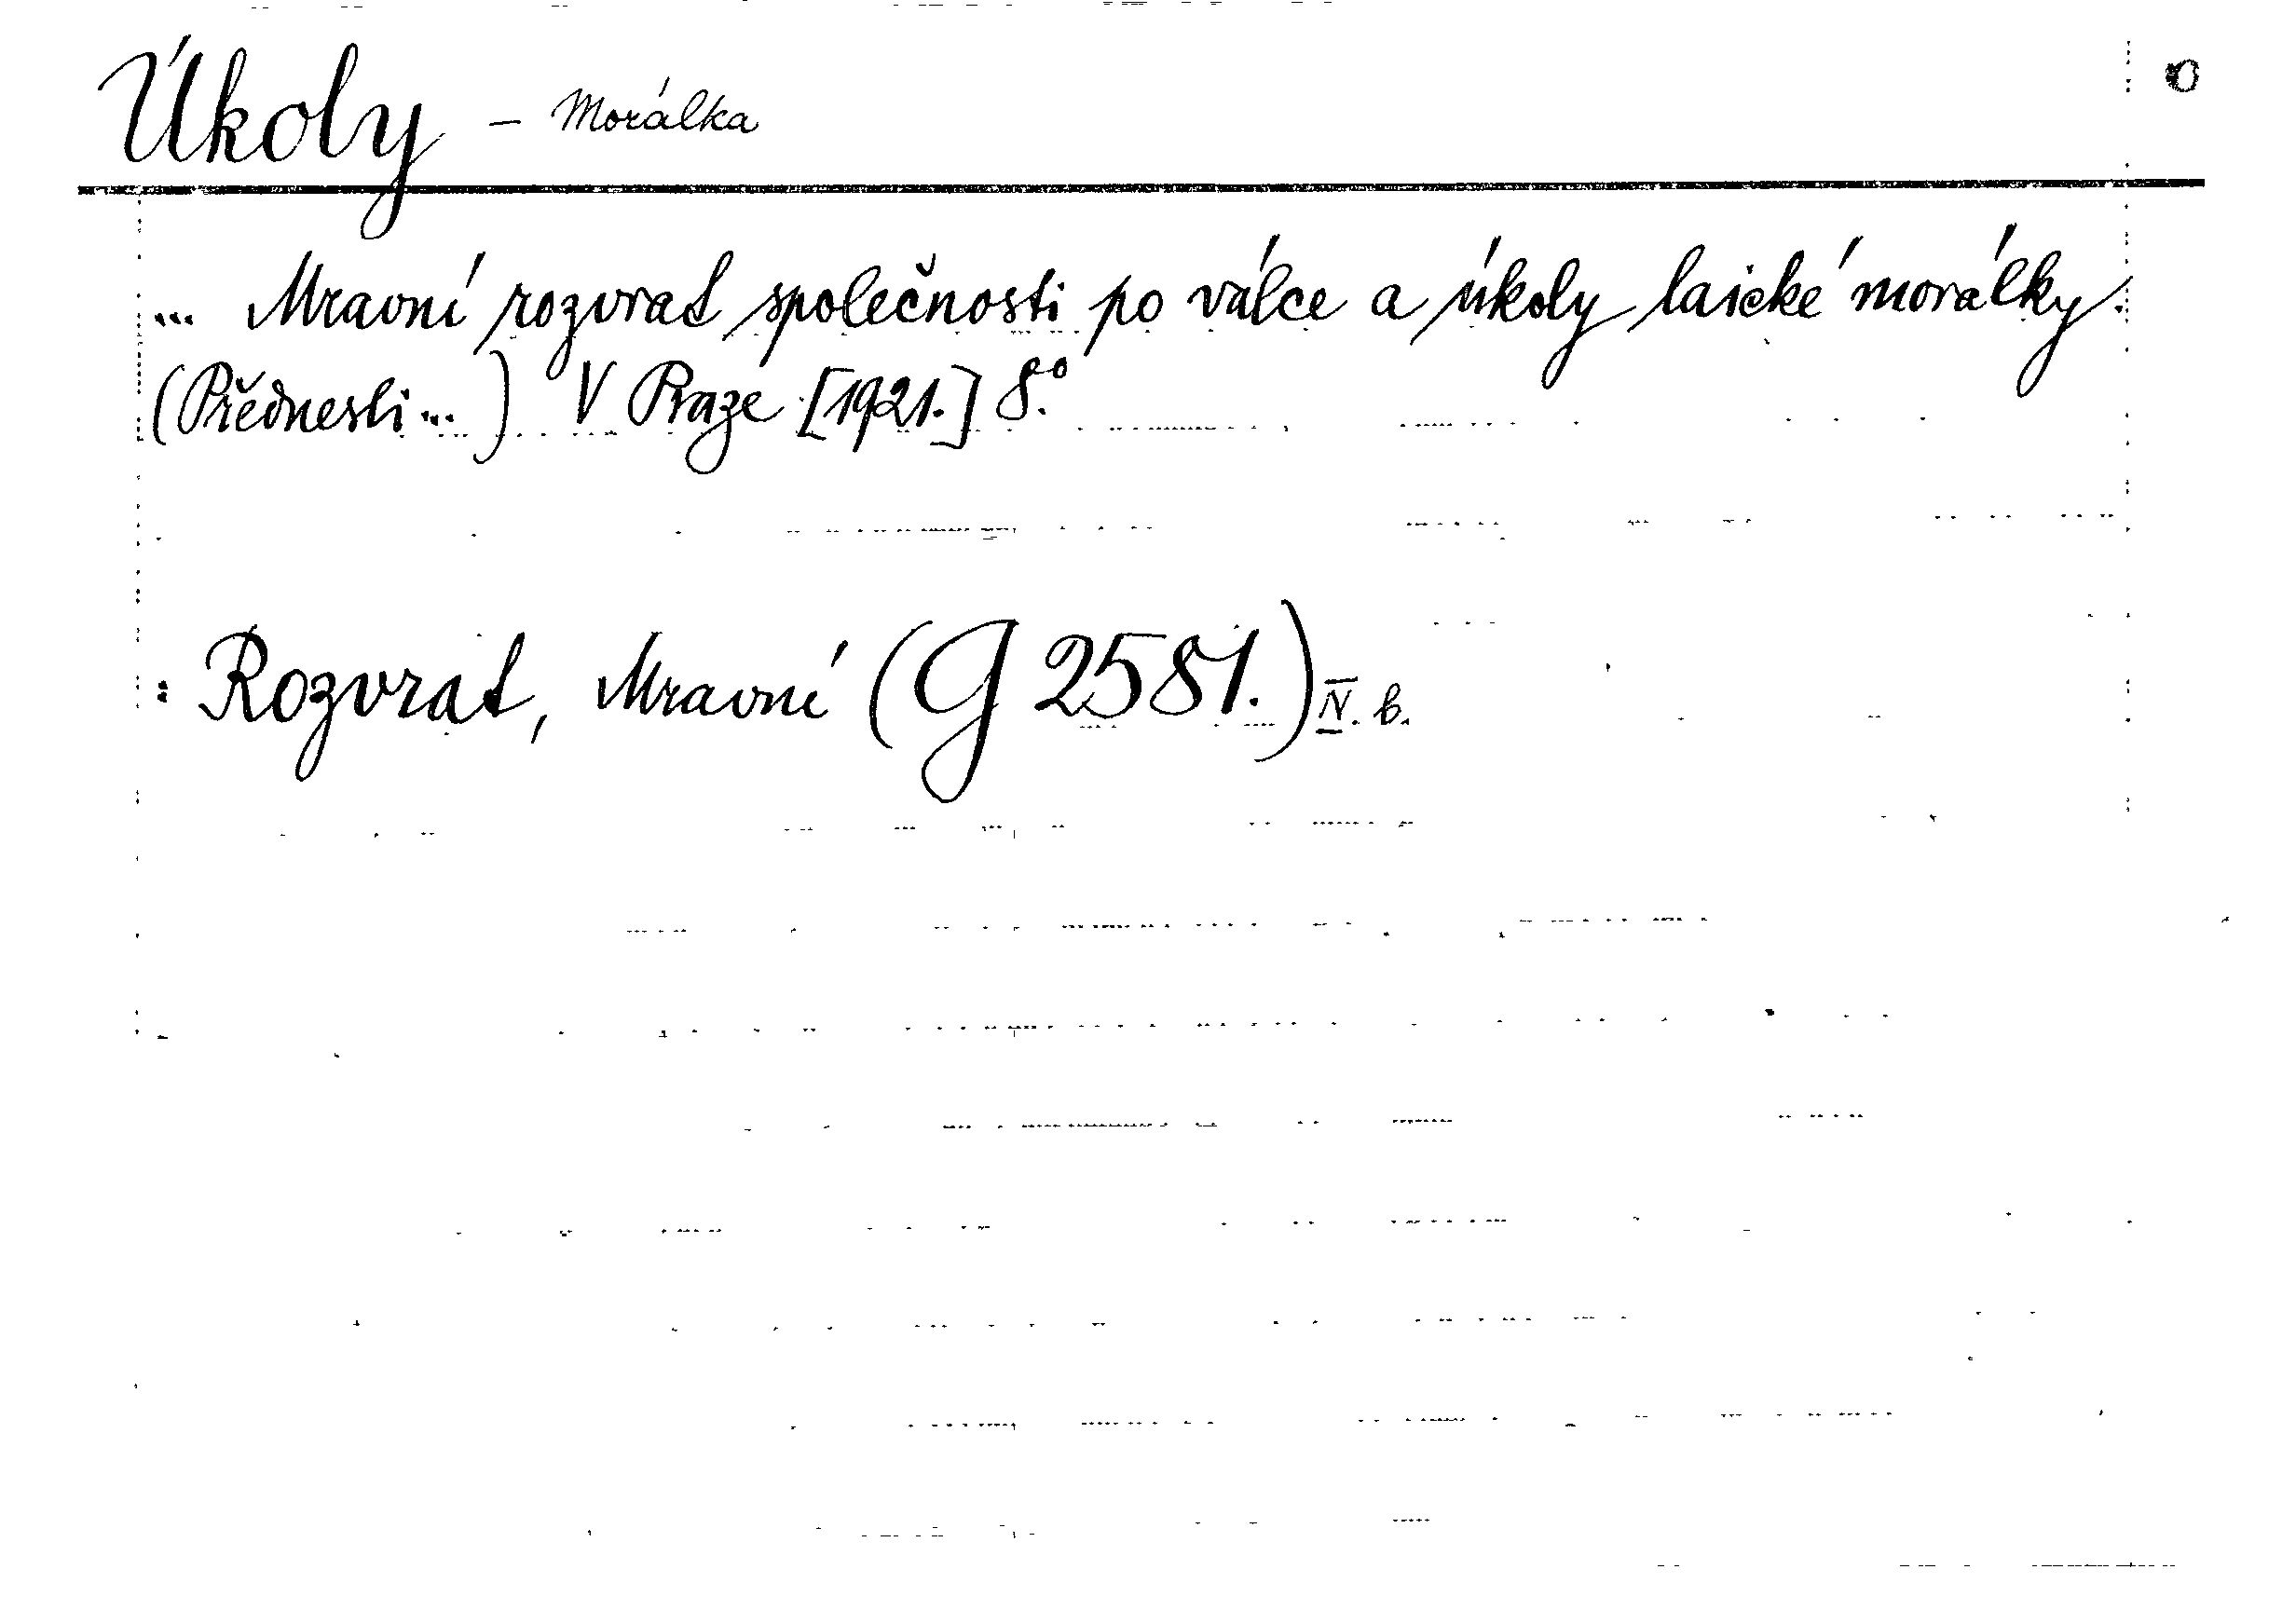 Úkoly – Morálka
... Mravní rozvrat společnosti po válce a úkoly laické morálky.
(Přednesli ...) V Praze [1921.] 8.º
: Rozvrat, Mravní (G 2581.) IV. b.